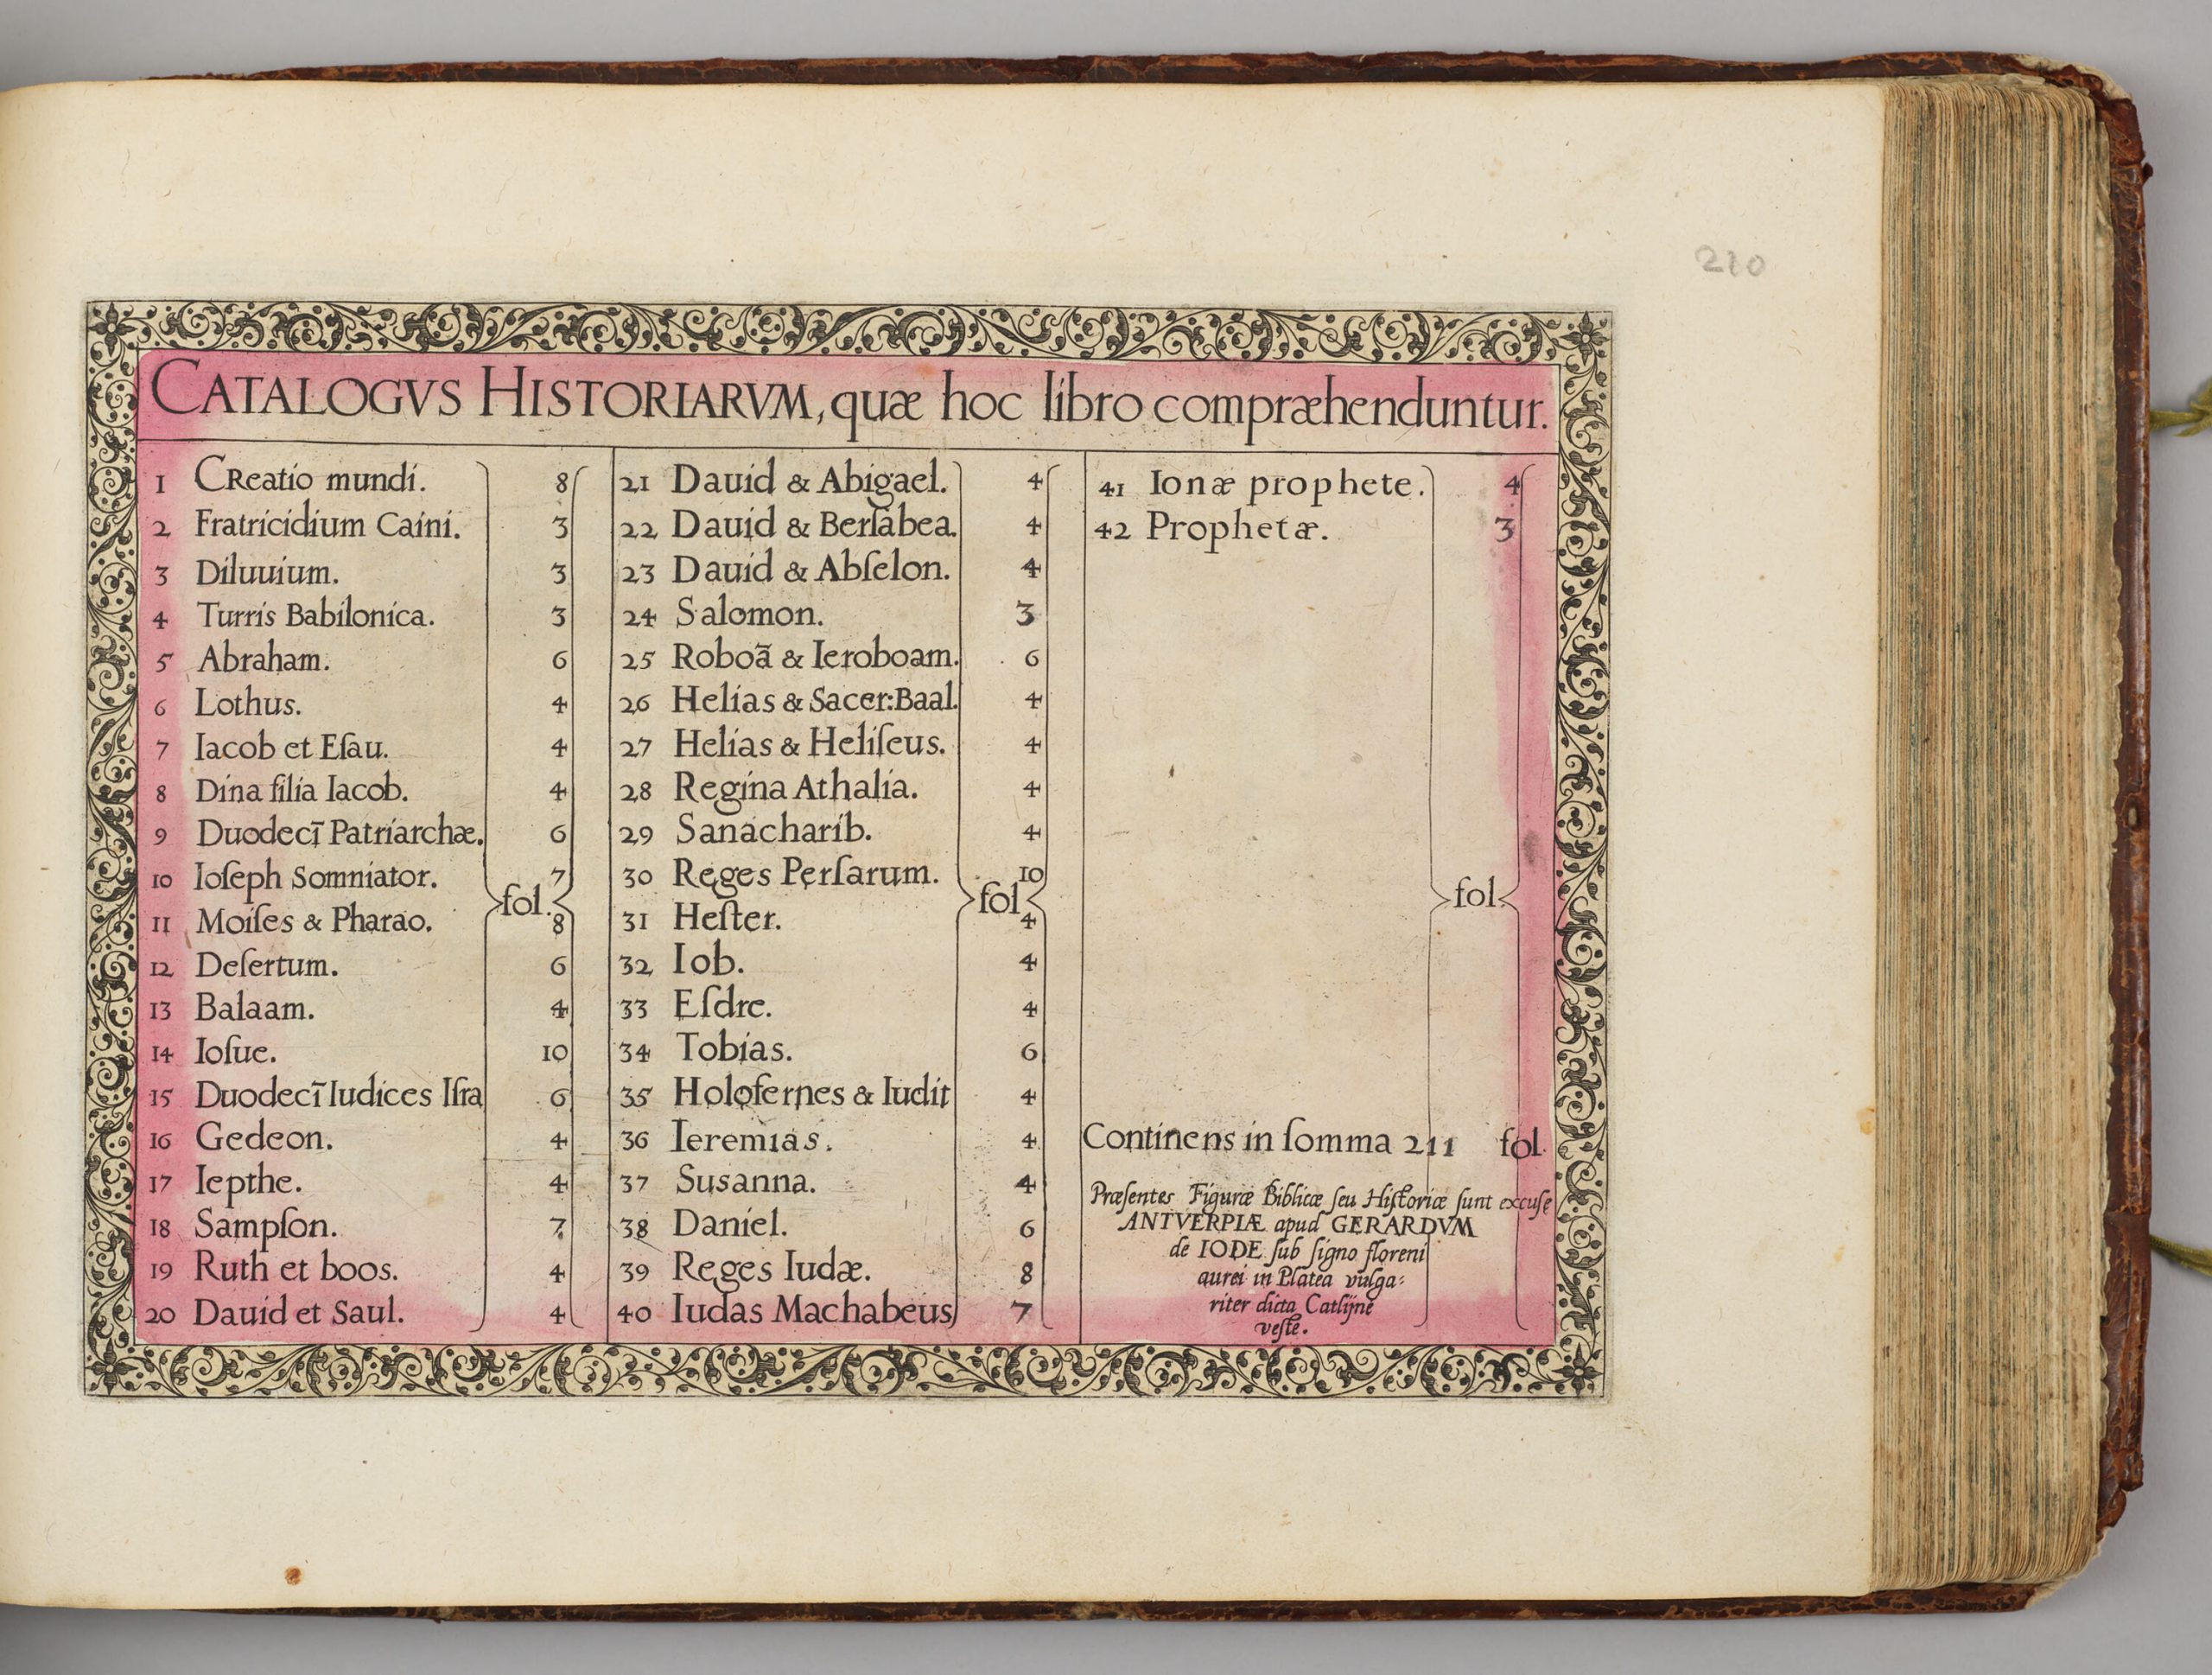 210
CATALOGVS HISTORIARVM, quæ hoc libro compræhenduntur.
1 CReatio mundi. 8
2 Fratricidium Caini. 3
3 Diluuium. 3
4 Turris Babilonica. 3
5 Abraham. 6
6 Lothus. 4
7 Iacob et Eſau. 4
8 Dina filia Iacob. 4
9 Duodecī Patriarchæ. 6
10 Ioſeph Somniator. 7
fol.
11 Moiſes & Pharao. 8
12 Deſertum. 6
13 Balaam. 4
14 Ioſue. 10
15 Duodecī Iudices Iſra 6
16 Gedeon. 4
17 Iepthe. 4
18 Sampſon. 7
19 Ruth et boos. 4
20 Dauid et Saul. 4
21 Dauid & Abigael. 4
22 Dauid & Berſabea. 4
23 Dauid & Abſelon. 4
24 Salomon. 3
25 Roboã & Ieroboam. 6
26 Helias & Sacer:Baal. 4
27 Helias & Heliſeus. 4
28 Regina Athalia. 4
29 Sanacharib. 4
30 Reges Perſarum. 10
fol
31 Heſter. 4
32 Iob. 4
33 Eſdre. 4
34 Tobias. 6
35 Holofernes & Iudit 4
36 Ieremias. 4
37 Susanna. 4
38 Daniel. 6
39 Reges Iudæ. 8
40 Iudas Machabeus 7
41 Ionæ prophete. 4
42 Prophetæ. 3
fol
Continens in ſomma 211 fol.
Præſentes Figuræ Biblicæ ſeu Hiſtoriæ ſunt excuſe
ANTVERPIÆ apud GERARDVM
de IODE ſub ſigno floreni
aurei in Platea vulga:
riter dicta Catlijne
veſte.